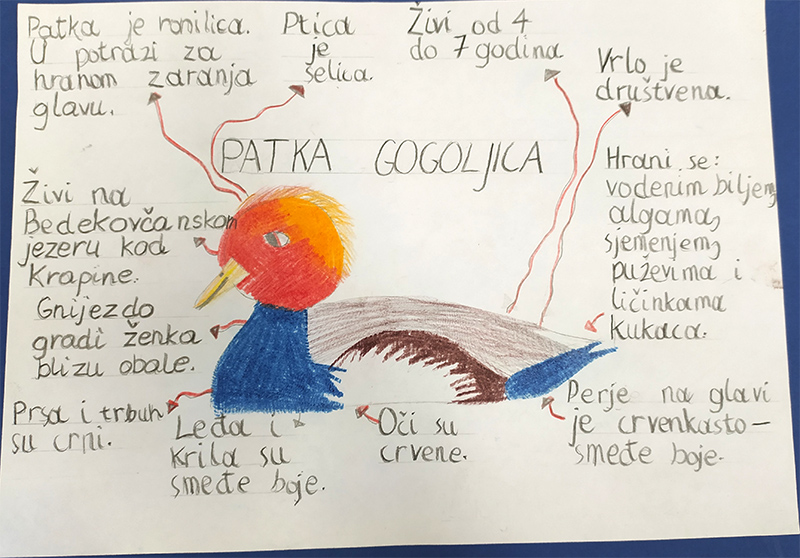 Patka je ronilica.
U potrazi za
hranom zaranja
glavu.
Ptica
je
selica.
Živi od 4
do 7 godina
Vrlo je
društvena.
PATKA GOGOLJICA
Živi na
Bedekovčanskom
jezeru kod
Krapine.
Gnijezdo
gradi ženka
blizu obale.
Hrani se:
vodenim biljem,
algama,
sjemenjem,
puževima i
ličinkama
kukaca.
Prsa i trbuh
su crni.
Leđa i
krila su
smeđe boje.
Oči su
crvene.
Perje na glavi
je crvenkasto-
smeđe boje.